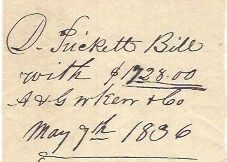 D. Tuckett Bill
with $728.00
A & G W Kerr & Co
May 9th 1836